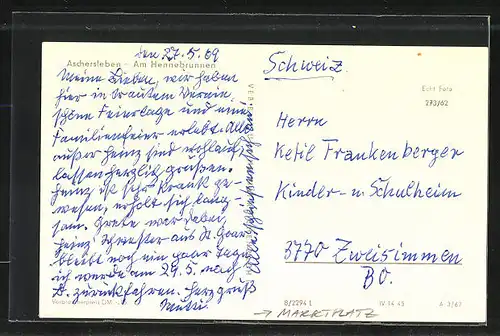 den 27.5.69
Aschersleben – Am Hennebrunnen
Meine Lieben, wir haben
hier in trautem Verein
schöne Feiertage und eine
Familienfeier erlebt. Alle
außer Heinz sind wohlauf,
lassen herzlich grüßen.
Heinz ist sehr krank ge-
wesen, erholt sich lang-
sam. Grete war dabei,
Heinz' Schwester aus St. Goar
bleibt noch ein paar Tage,
ich werde am 29.5. nach
zurückfahren. Herz. Gruß
Mutti
Schweiz
Echt Foto
270/62
Herrn
Ketil Frankenberger
Kinder- u. Schulheim
3770 Zweisimmen
BO.
8/2294 L
IV 14 45
→ MARKTPLATZ